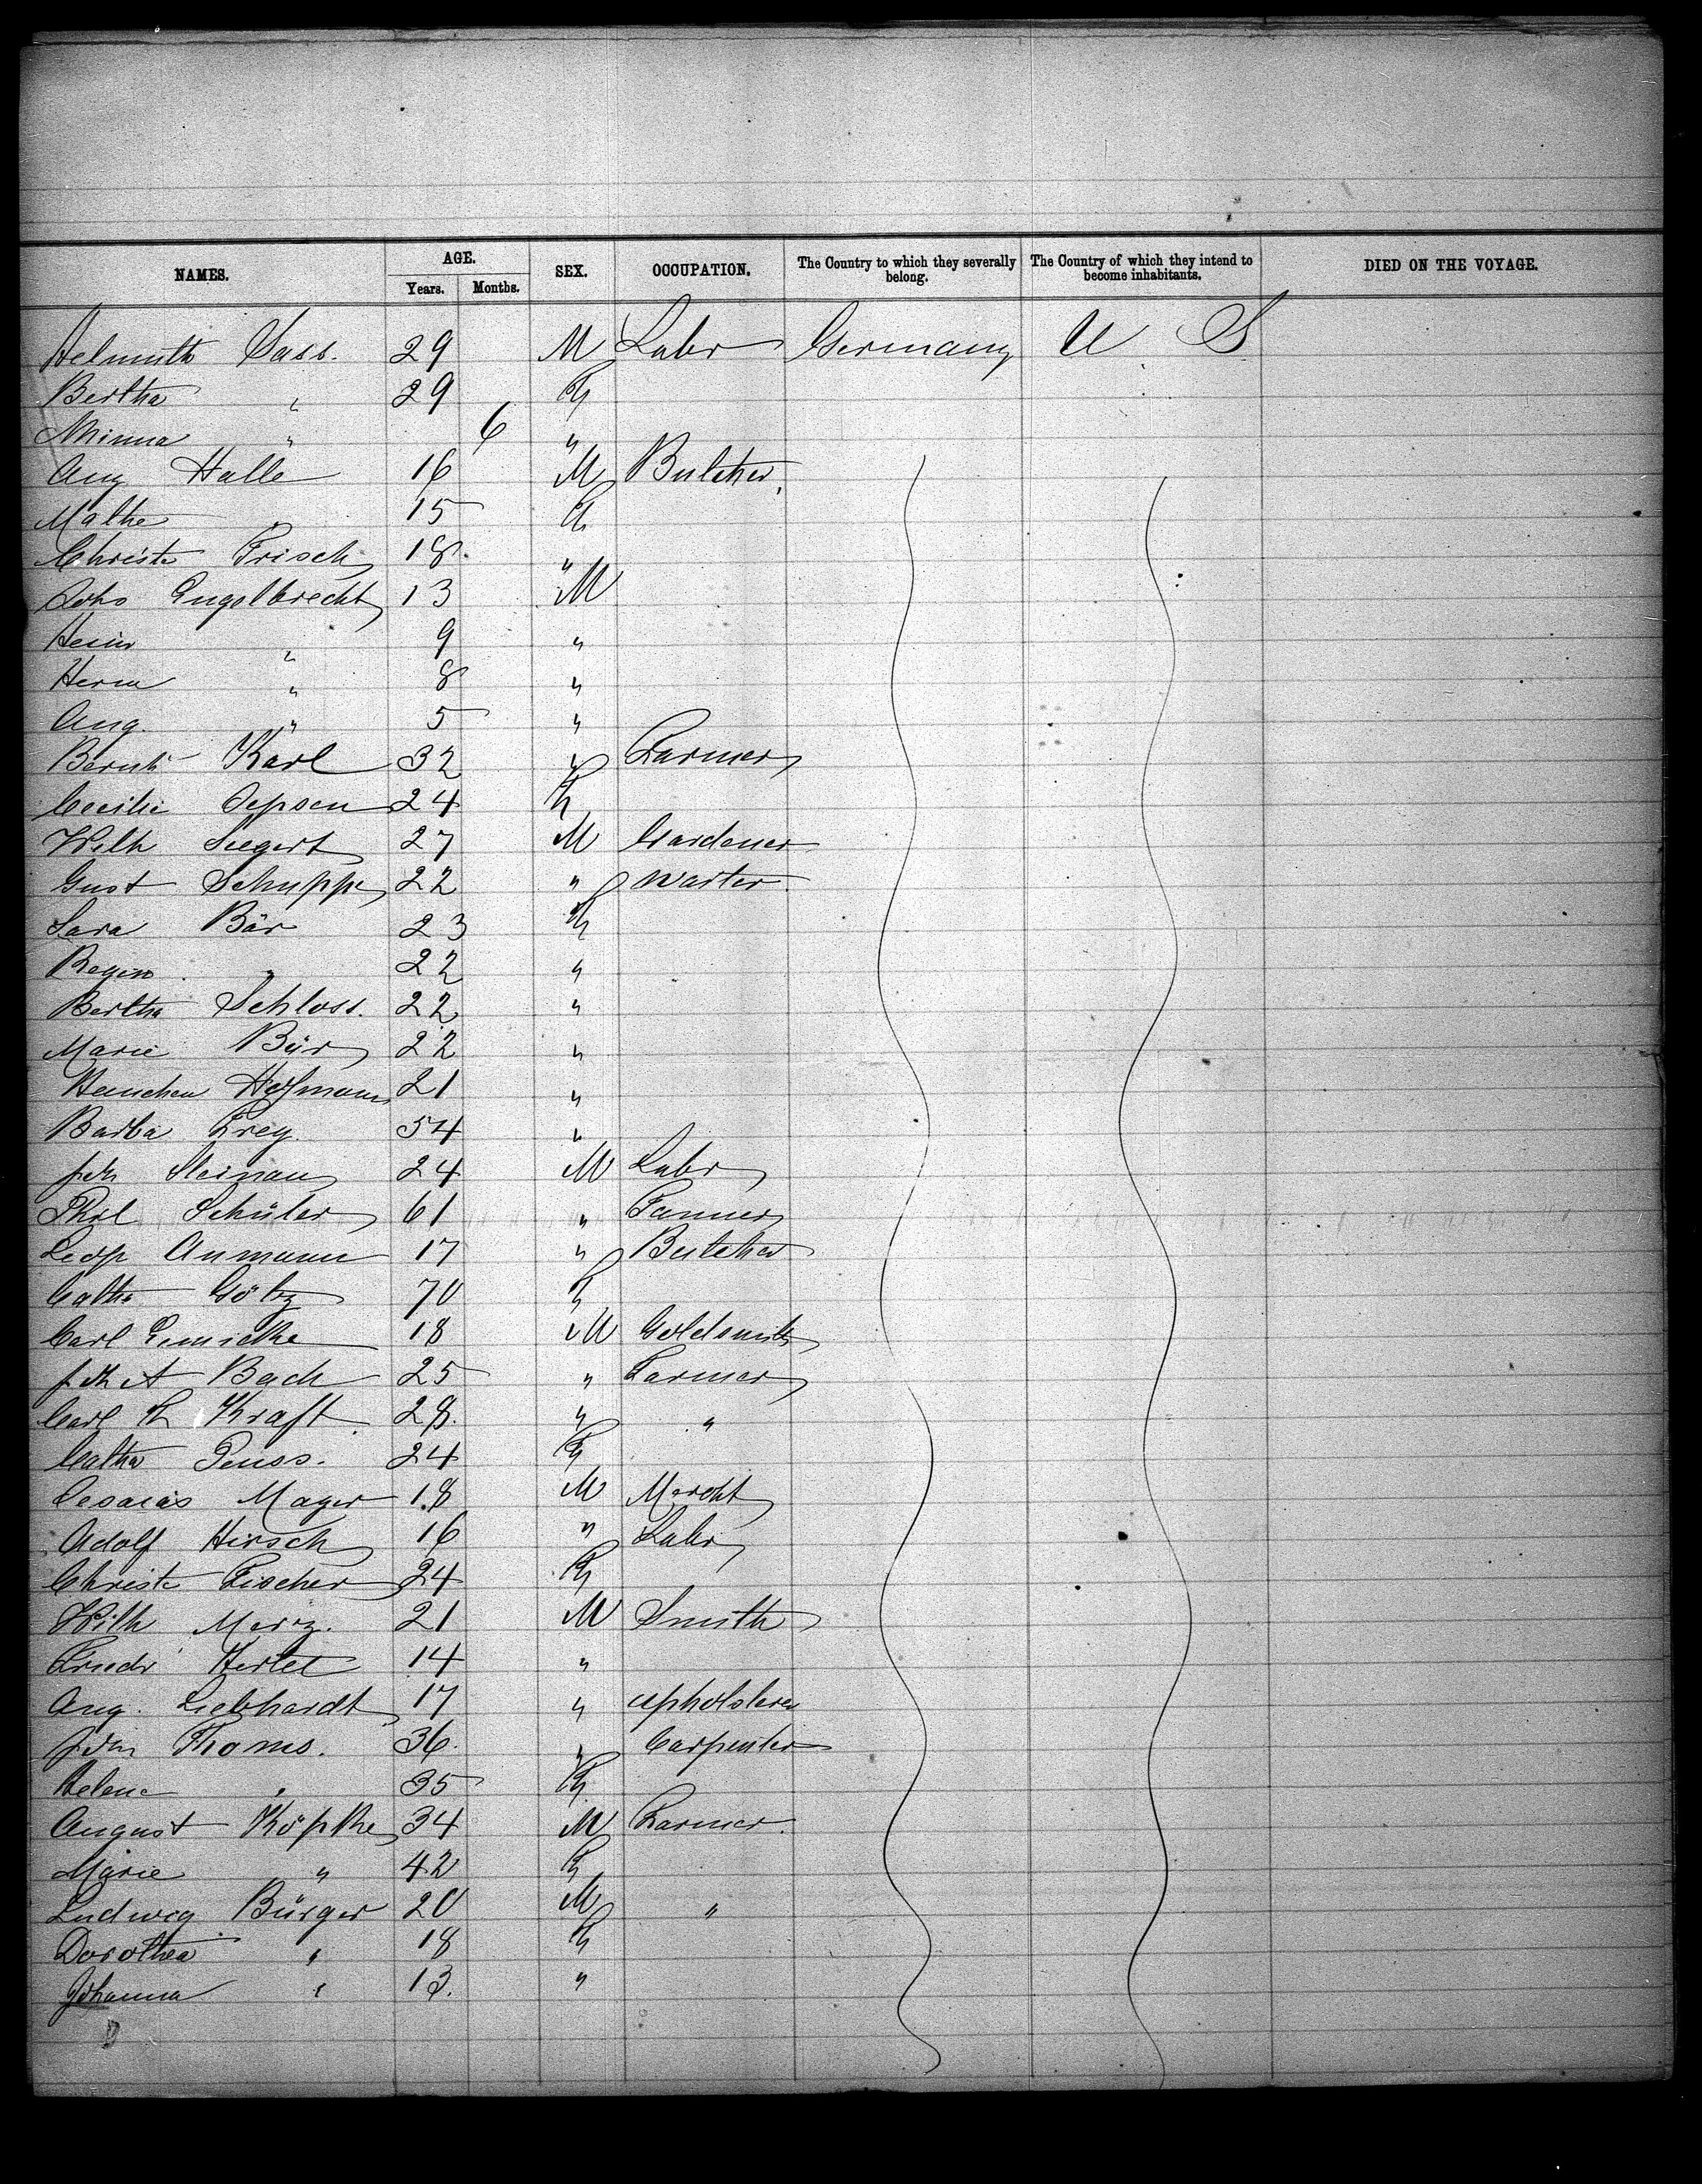 NAMES. AGE. SEX. OCCUPATION. The Country to which they severally belong. The Country of which they intend to become inhabitants. DIED ON THE VOYAGE.
Years. Months.
Helmuth Sass. 29 M Labr Germany U S
Bertha " 29 F
Minna " 6 "
Aug Halle 16 M Butcher.
Mathe " 15 F
Christe Frisch 18. "
Engelbrecht 13 M
Heinr " 9 "
Herm " 8 "
Aug. " 5 "
Bernh Karl 32 " Farmer
Cecilie Jepsen 24 F
Wilh Siegert 27 M Gardener
Gust Schuppe 22 " Waiter
Sara Bär 23 F
Regin " 22 "
Bertha Schloss. 22 "
Marie Bär 22 "
Hannchen Hofmann 21 "
Barba Frey 54 "
Joh Steinau 24 M Labr
Phil Schüler 61 " Tanner
Leop Aumann 17 " Butcher
Catha Götz 70 F
Carl 18 M Goldsmith
Joh A Bach 25 " Farmer
Carl Kraft 28. " "
Catha Peuss. 24 F
Mayer 18 M Mercht
Adolf Hirsch 16 " Labr
Christe Fischer 24 F
Wilh Merz. 21 M Smith
Friedr Hertel 14 "
Aug. Liebhardt 17 " upholsterer
Joh Thoms. 36. " Carpenter
Helene " 35 F
August Köpke 34 M Farmer.
Marie " 42 F
Ludwig Bürger 20 M "
Dorothea " 18 F
Johanna " 13. "